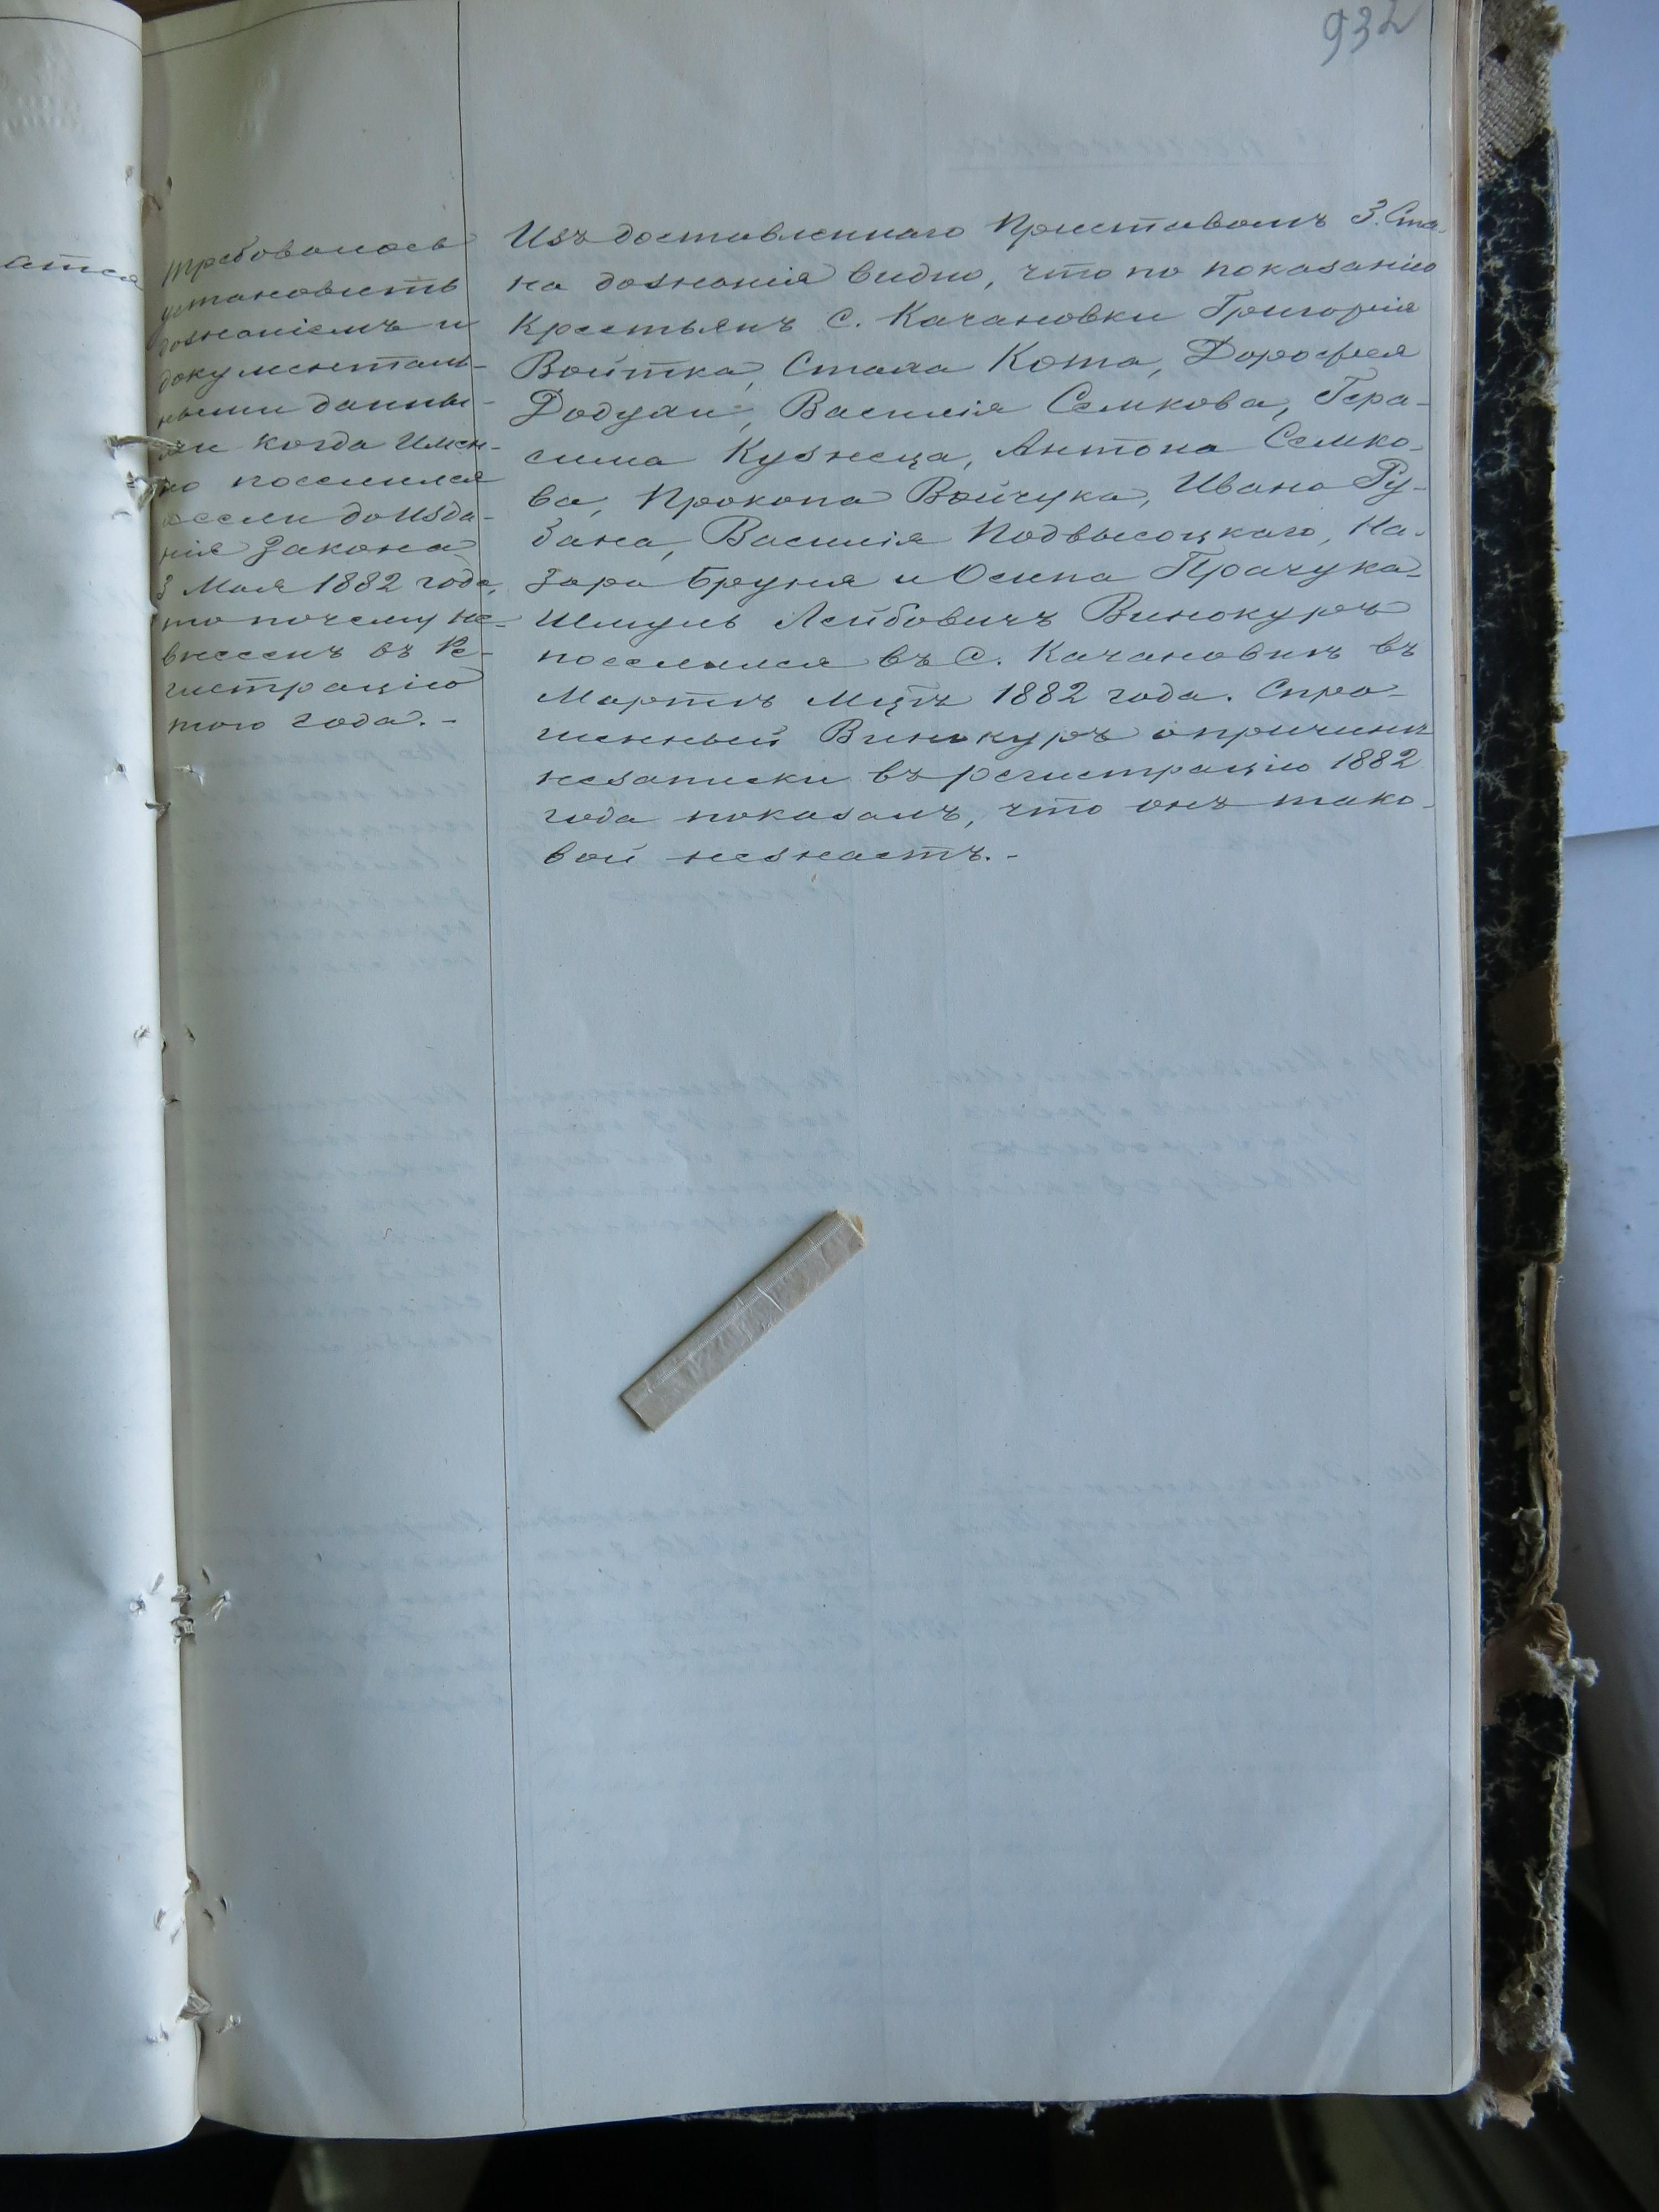 932
атся
Требовалось
установить
дознаніемъ и
документаль-
ными данны-
ми когда Имен-
но поселился
и если до Изда-
нія Закона
3 Мая 1882 года,
то почему не-
внесенъ въ Ре-
гистрацію
того года. -
Изъ доставленнаго Приставомъ 3. Ста-
на дознанія видно, что по показанію
Крестьянъ С. Качановки Григорія
Войтка, Стаха Кота, Дорофея
Додухи, Василія Семкова, Гера-
сима Кузнеца, Антона Семко-
ва, Прокопа Войчука, Ивана Ру-
зана, Василія Подвысоцкаго, На-
зара Бруня и Осипа Прачука
Шмуль Лейбовичъ Винокуръ
поселился въ С. Качановкѣ въ
Мартѣ Мцѣ 1882 года. Спро-
шенный Винокуръ о причинѣ
незаписки въ регистрацію 1882
года показалъ, что онъ тако-
вой незнаетъ. -